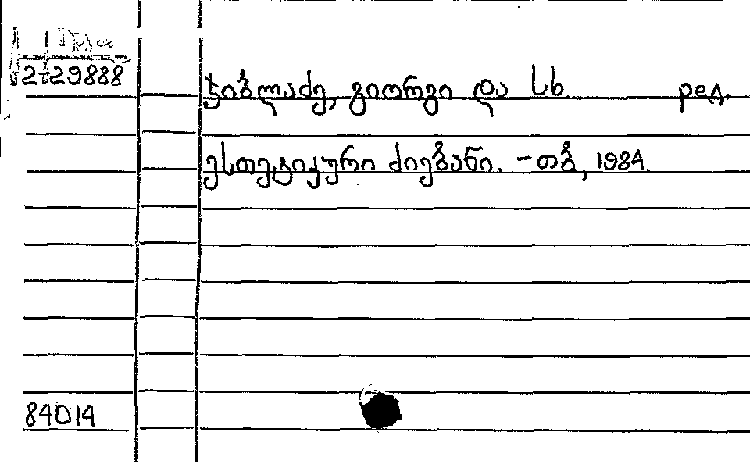 2-29888
ჯიბლაძე, გიორგი და სხ. ред.
ესთეტიკური ძიებანი. - თბ, 1984.
84014